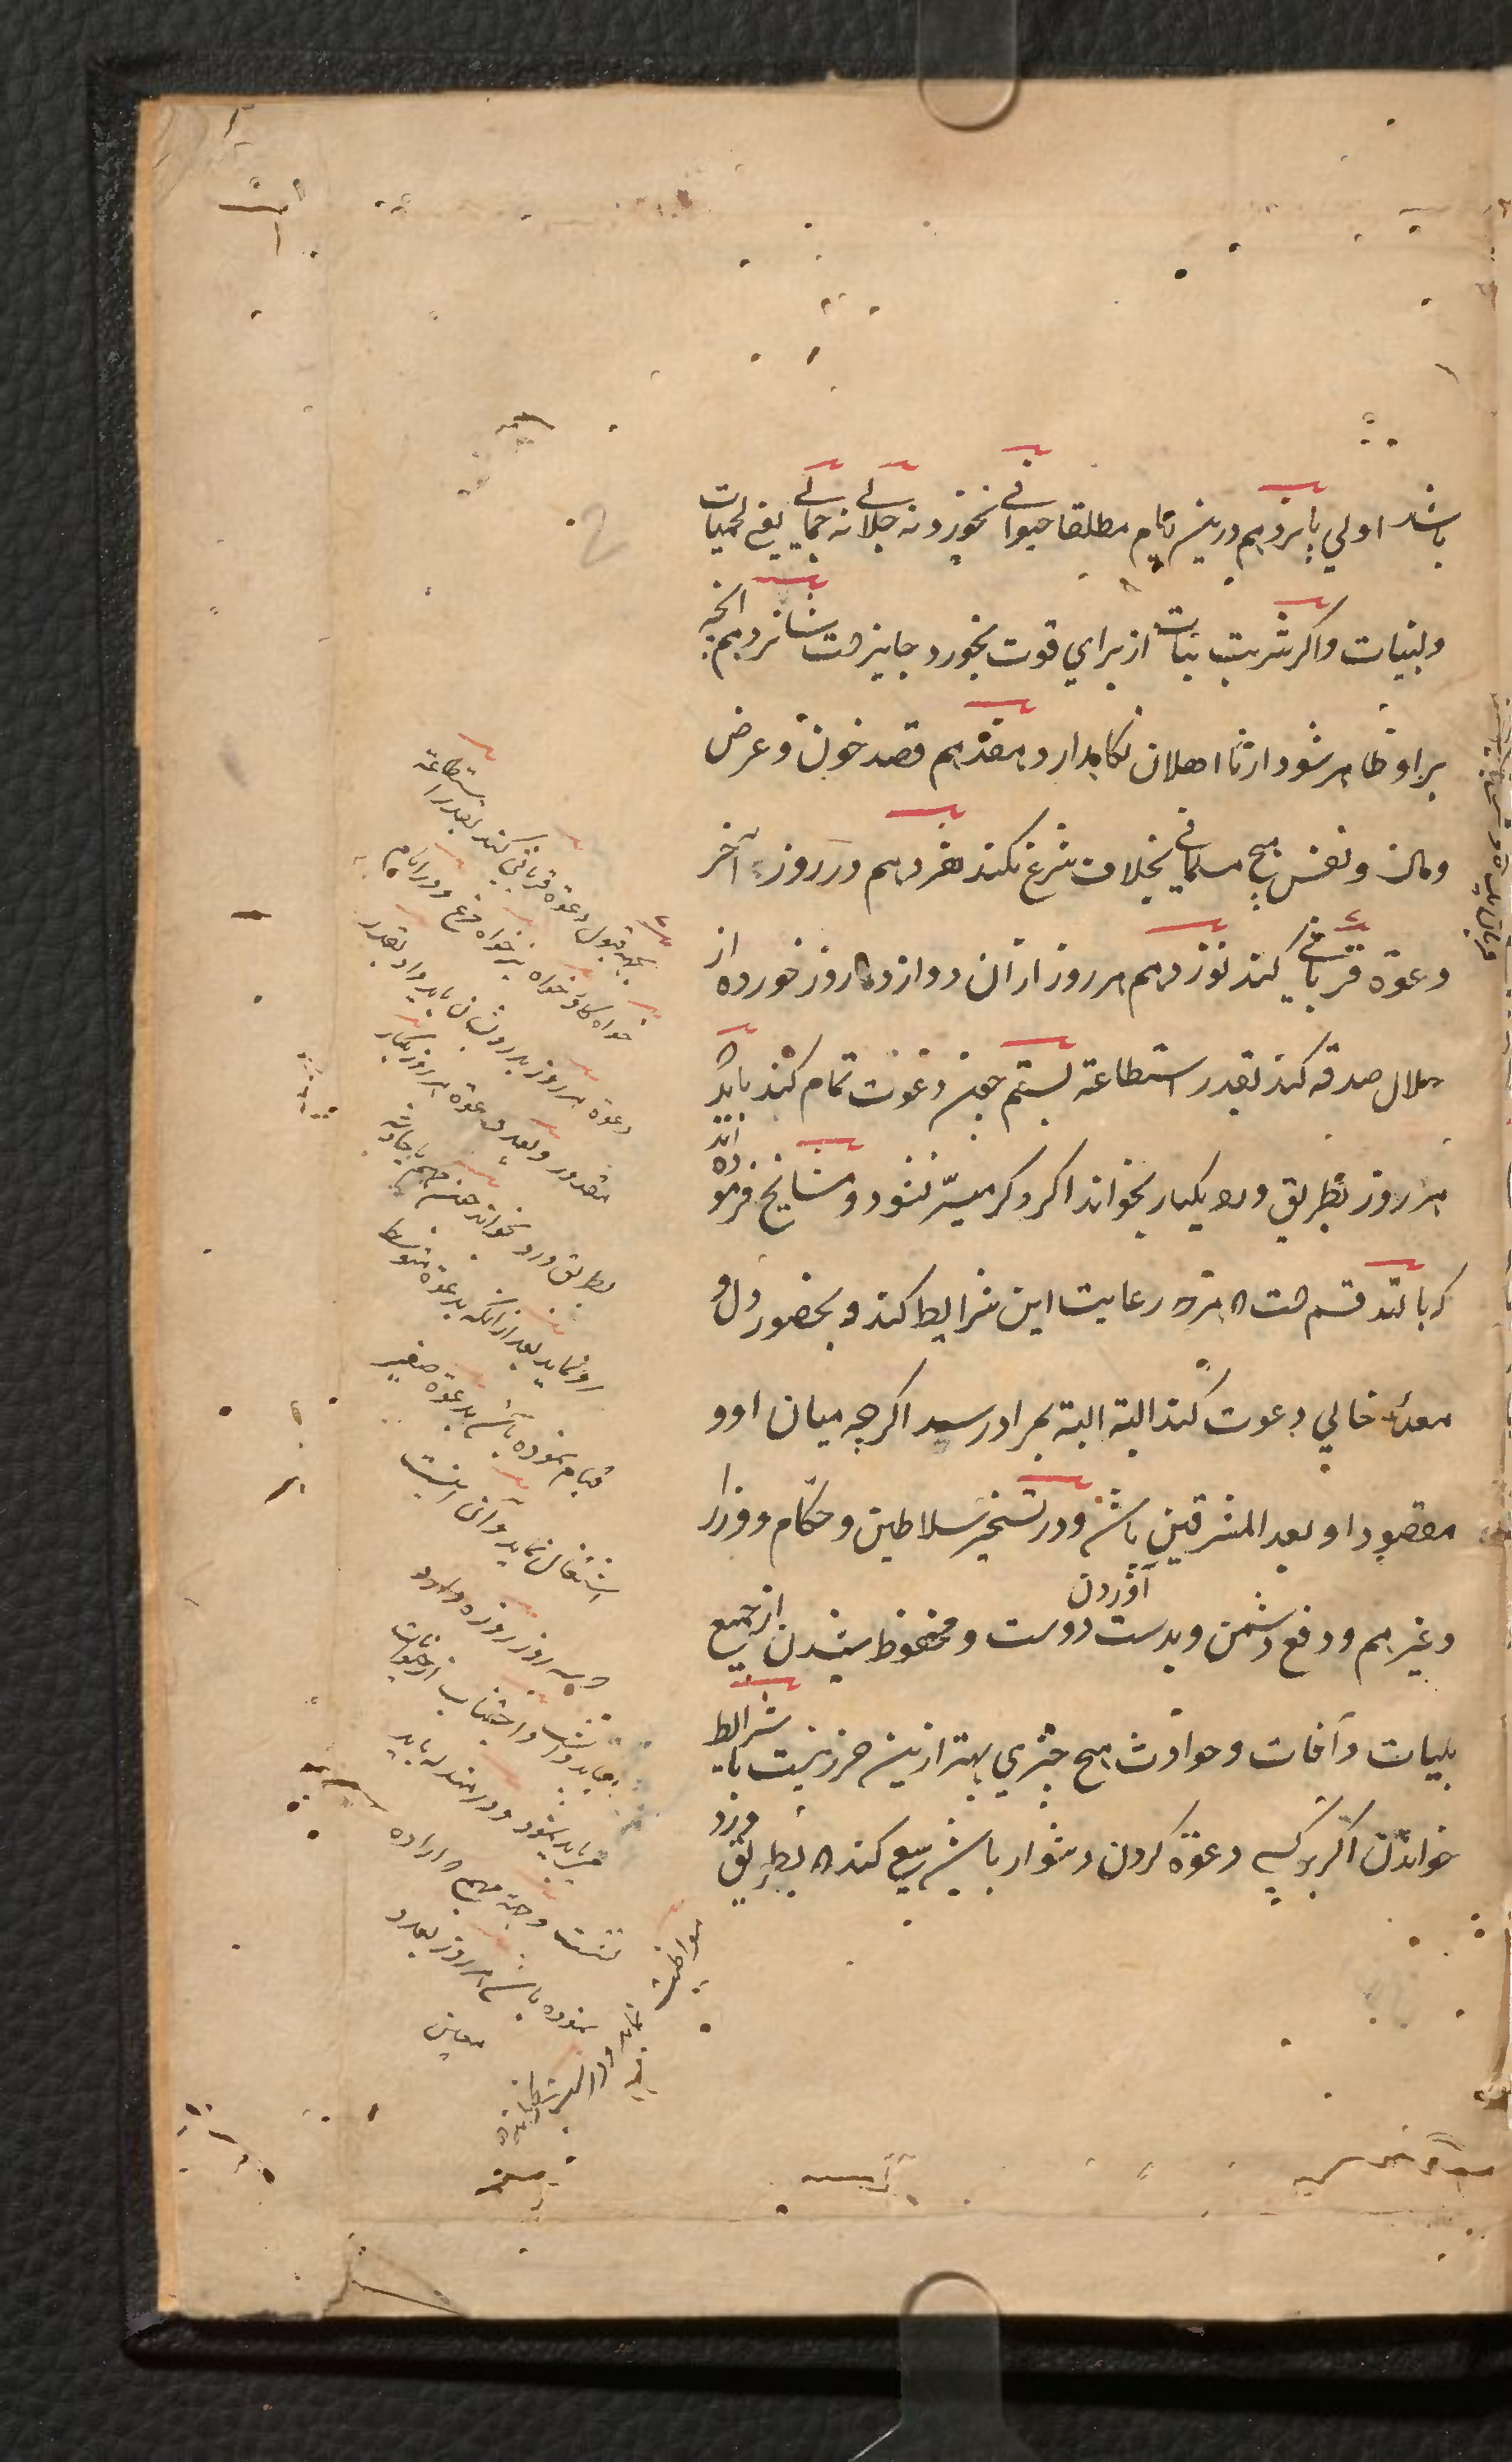 باشد اولی پانزدهم درین ایام مطلقا حیوانی نخورد نه جلالی نه جمالی یعنی لحمیات
و لبنیات و اگر شربت نبات از برای قوت بخورد جایزست شانزدهم آنچه
بر او ظاهر شود از نااهلان نگاهدارد هفدهم قصد خون و عرض
و مال و نفس هیچ مسلمانی بخلاف شرع نکند هژدهم در روز آخر
دعوة قربانی کند نوزدهم هر روز از آن دوازده روز خورده از
حلال صدقه کند بقدر استطاعة بیستم چون دعوت تمام کند باید که
هر روز بطریق ورد یکبار بخواند اگر دگر میسّر نشود و مشایخ فرموده اند
که بالله قسم است که هرکه رعایت این شرایط کند و بحضور دل و
معدهٔ خالی دعوت کند البته البته بمراد رسد اگرچه میان او و
مقصود او بعد المشرقین باشد و در تسخیر سلاطین و حکام و وزرا
و غیرهم و دفع دشمن و بدست آوردن دوست و محفوظ شدن از جمیع
بلیات و آفات و حوادث هیچ چیزی بهتر ازین حرز نیست با شرایط
خواندن اگر بر کسی دعوة کردن دشوار باشد سعی کند که بطریق ورد
بجهة قبول دعوة قربانی کند بقدر استطاعة
خواه گاو خواه بز خواه مرغ و در ایام
دعوة هر روز بدرویشان باید داد بقدر
مقدور و بعد دعوة هر روز یکبار
بطریق ورد بخواند چون مهم یا حادثه
رو نماید بعد از آنکه بدعوة متوسط
قیام نموده باشد بدعوة صغیر
اشتغال نماید و آن اینست
که سه روز روزه دارد
و اجتناب از حیوانات
نیست و جهة مهم که اراده
نموده باشد هر روز بعدد
معین
مواظبت
نماید